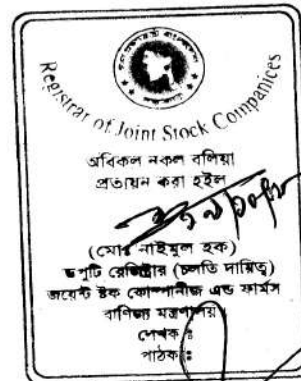 Registrar of Joint Stock Companices
অবিকল নকল বলিয়া
প্রত্যয়ন করা হইল
(মোঃ নাইমুল হক)
ডপুটি রেজিষ্ট্রার (চলতি দায়িত্ব)
জয়েন্ট ষ্টক কোম্পানীজ এন্ড ফার্মস
বাণিজ্য মন্ত্রণালয়।
লেখক ঃ
পাঠক ঃ